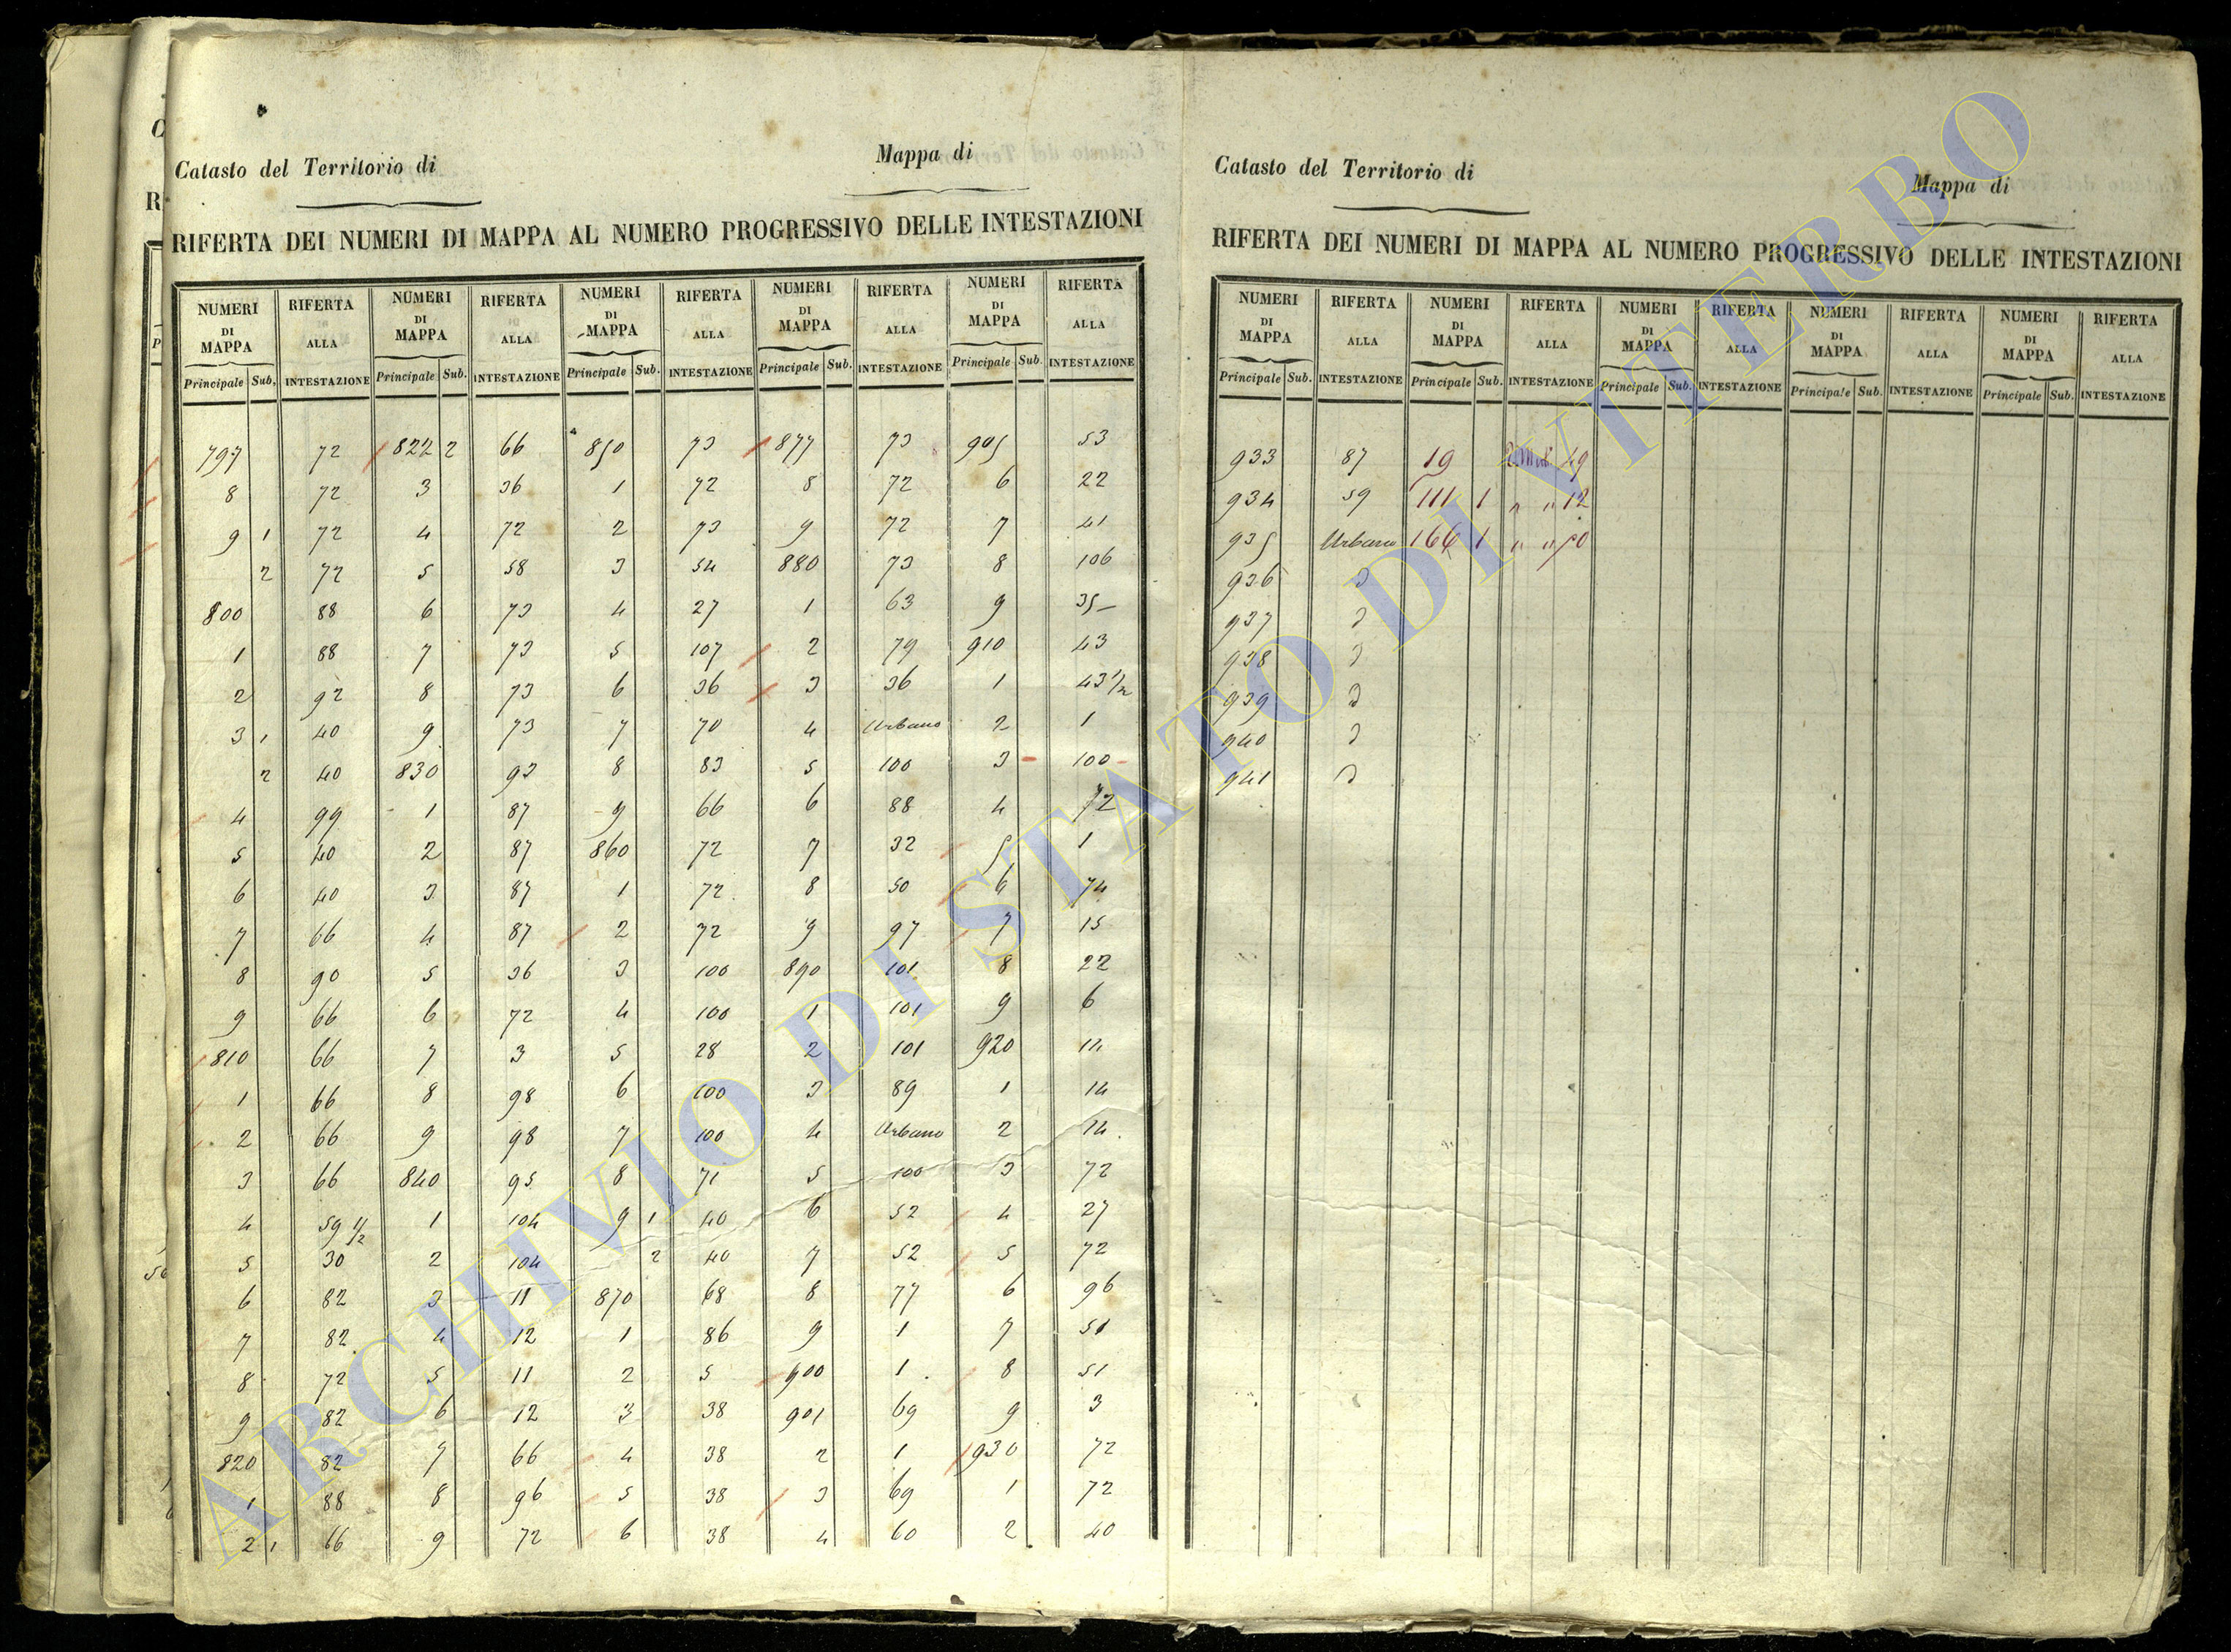 Catasto del Territorio di
Mappa di
RIFERTA DEI NUMERI DI MAPPA AL NUMERO PROGRESSIVO DELLE INTESTAZIONI
NUMERI DI MAPPA RIFERTA ALLA INTESTAZIONE NUMERI DI MAPPA RIFERTA ALLA INTESTAZIONE NUMERI DI MAPPA RIFERTA ALLA INTESTAZIONE NUMERI DI MAPPA RIFERTA ALLA INTESTAZIONE NUMERI DI MAPPA RIFERTA ALLA INTESTAZIONE
Principale Sub. Principale Sub. Principale Sub. Principale Sub. Principale Sub.
797 72 822 2 66 850 73 877 73 905 53
8 72 3 36 1 72 8 72 6 22
9 1 72 4 72 2 73 9 72 7 41
2 72 5 58 3 54 880 73 8 106
800 88 6 73 4 27 1 63 9 35
1 88 7 73 5 107 2 79 910 43
2 92 8 73 6 36 3 36 1 43 1/2
3 1 40 9 73 7 70 4 Urbano 2 1
2 40 830 93 8 83 5 100 3 100
4 99 1 87 9 66 6 88 4 72
5 40 2 87 860 72 7 32 5 1
6 40 3 87 1 72 8 50 6 74
7 66 4 87 2 72 9 97 7 15
8 90 5 36 3 100 890 101 8 22
9 66 6 72 4 100 1 101 9 6
810 66 7 3 5 28 2 101 920 14
1 66 8 98 6 100 3 89 1 14
2 66 9 98 7 100 4 Urbano 2 14
3 66 840 95 8 71 5 100 3 72
4 59 1/2 1 104 9 1 40 6 52 4 27
5 30 2 104 2 40 7 52 5 72
6 82 3 11 870 68 8 77 6 96
7 82 4 12 1 86 9 1 7 51
8 72 5 11 2 5 900 1 8 51
9 82 6 12 3 38 901 69 9 3
820 82 7 66 4 38 2 1 930 72
1 88 8 96 5 38 3 69 1 72
2 1 66 9 72 6 38 4 60 2 40
Catasto del Territorio di
Mappa di
RIFERTA DEI NUMERI DI MAPPA AL NUMERO PROGRESSIVO DELLE INTESTAZIONI
NUMERI DI MAPPA RIFERTA ALLA INTESTAZIONE NUMERI DI MAPPA RIFERTA ALLA INTESTAZIONE NUMERI DI MAPPA RIFERTA ALLA INTESTAZIONE NUMERI DI MAPPA RIFERTA ALLA INTESTAZIONE NUMERI DI MAPPA RIFERTA ALLA INTESTAZIONE
Principale Sub. Principale Sub. Principale Sub. Principale Sub. Principale Sub.
933 87 19 49
934 59 111 1 " " 12
935 Urbano 166 1 " " 50
936
937
938
939
940
941
ARCHIVIO DI STATO DI VITERBO